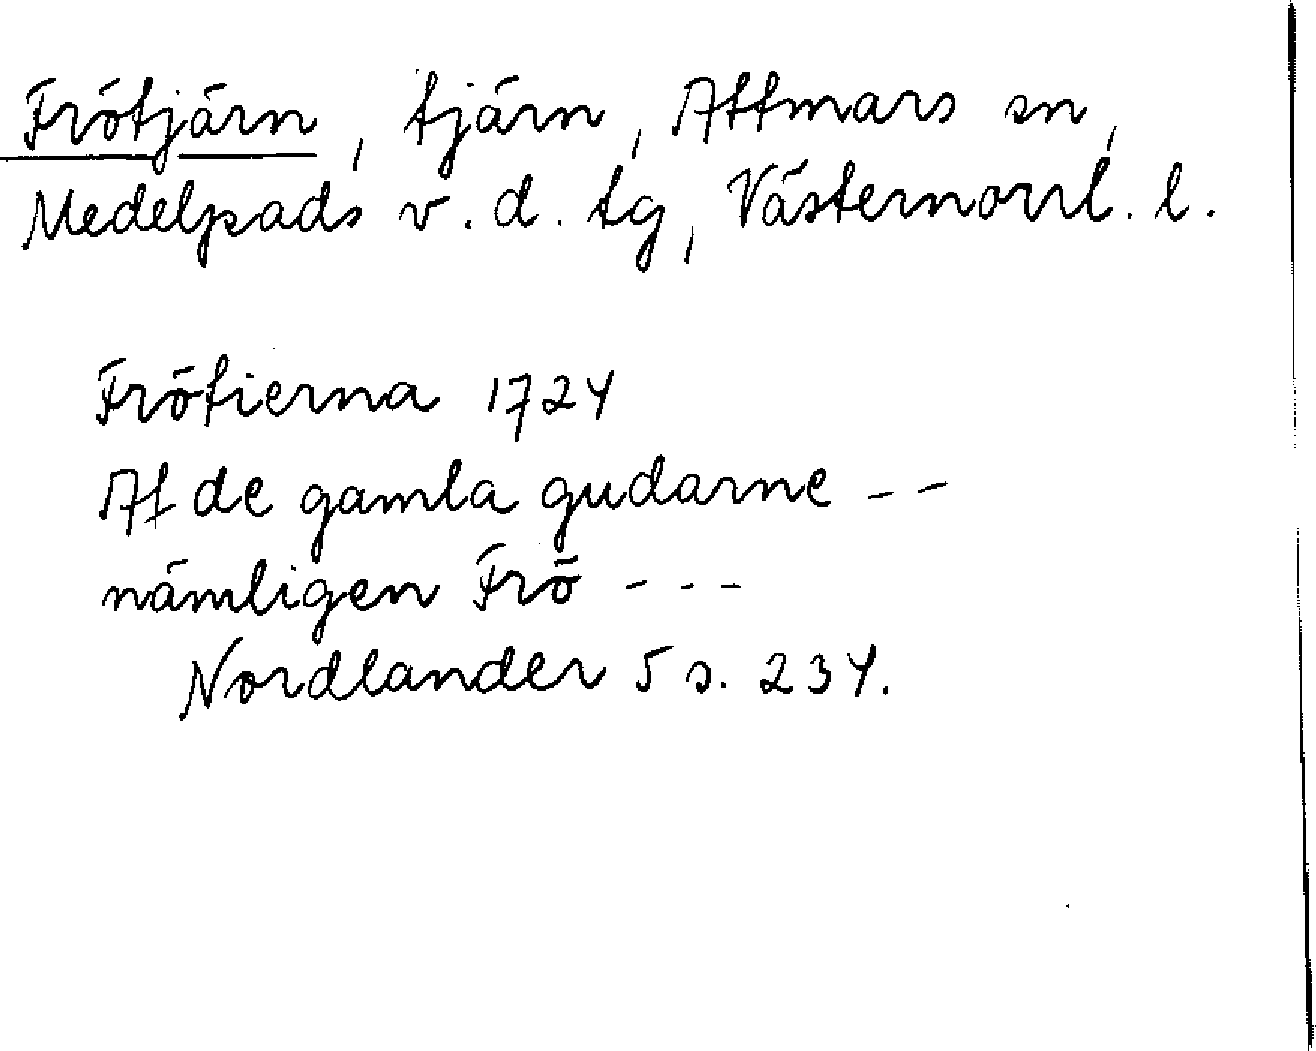 Frötjärn, tjärn, Attmars sn,
Medelpads v. d. tg, Västernorrl. l.
Frötierna 1724
Af de gamla gudarne - -
nämligen Frö - - -
Nordlander 5 s. 234.